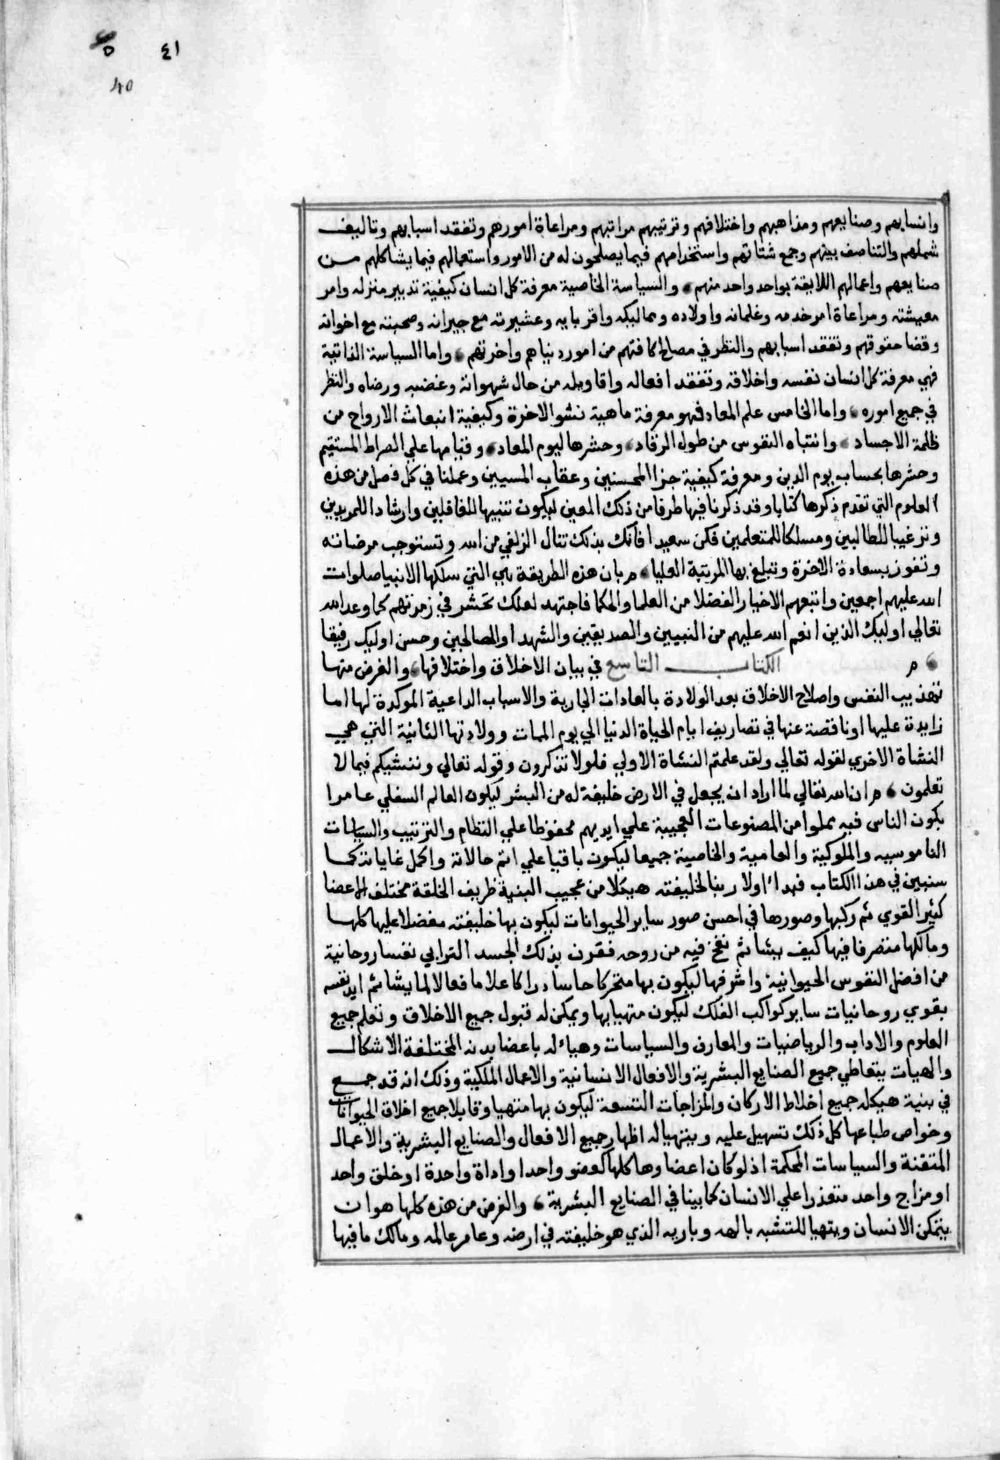 ٤١ ٥
40
وانسابهم وصنايعهم ومذاهبهم واختلافهم وترتيبهم مراتبهم ومراعاة امورهم وتفقد اسبابهم وتاليف
شملهم والتناصف بينهم وجمع شتاتهم واستخدامهم فيما يصلحون له من الامور واستعمالهم فيما يشاكلهم من
صنايعهم واعمالهم اللايقة بواحد واحد منهم والسياسة الخاصية معرفة كل انسان كيفية تدبير منزله وامر
معيشته ومراعاة امر خدمه وغلمانه واولاده ومماليكه واقربايه وعشيرته مع جيرانه وصحبته مع اخوانه
وقضا حقوقهم وتفقد اسبابهم والنظر في مصالح كافتهم من امور دنياهم واخرتهم واما السياسة الذاتية
فهي معرفة كل انسان نفسه واخلاقه وتفقد افعاله واقاويله من حال شهواته وغضبه ورضاه والنظر
في جميع اموره واما الخامس علم المعاد فهو معرفة ماهية نشو الاخرة وكيفية انبعاث الارواح من
ظلمة الاجساد وانتباه النفوس من طول الرقاد وحشرها ليوم المعاد وقيامها علي الصراط المستقيم
وحشرها بحساب يوم الدين ومعرفة كيفية جزا المحسنين وعقاب المسيين وعملنا في كل فصل من هذه
العلوم التي تقدم ذكرها كتابا وقد ذكرنا فيها طرفا من ذلك المعين ليكون تنبيها للغافلين وارشادا للمريدين
وترغيبا للطالبين ومسلكا للمتعلمين فكن سعيدا فانك بذلك تنال الزلفي من الله وتستوجب مرضاته
وتفوز بسعادة الاخرة وتبلغ بها المرتبة العليا م بان هذه الطريقة هي التي سلكها الانبيا صلوات
الله عليهم اجمعين واتبعهم الاخيار الفضلا من العلما والحكما فاجتهد لعلك تحشر في زمرتهم كما وعد الله
تعالي اوليك الذين انعم الله عليهم من النبيين والصديقين والشهدا والصالحين وحسن اوليك رفيقا
م الكتاب التاسع في بيان الاخلاق واختلافها والغرض منها
تهذيب النفس واصلاح الاخلاق بعد الولادة بالعادات الجارية والاسباب الداعية الموكدة لها اما
زايدة عليها او ناقصة عنها في تصاريف ايام الحياة الدنيا الي يوم الممات وولادتها الثانية التي هي
النشاة الاخري لقوله تعالي ولقد علمتم النشاة الاولي فلولا تذكرون وقوله تعالي وننشيكم فيما لا
تعلمون م ان الله تعالي لما اراد ان يجعل في الارض خليفة له من البشر ليكون العالم السفلي عامرا
بكون الناس فيه مملوا من المصنوعات العجيبة علي ايديهم محفوظا علي النظام والترتيب والسياسات
الناموسيه والملوكية والعامية والخاصية جميعا ليكون باقيا علي اتم حالاته واكمل غاياته كما
سنبين في هذا الكتاب فبدا اولا ربنا لخليفته هيكلا من عجيب البنية ظريف الخلقة مختلف الاعضا
كثير القوي ثم ركبها وصورها في احسن صور ساير الحيوانات ليكون بها خليفته مفضلا عليها كلها
ومالكها متصرفا فيها كيف يشا ثم نفخ فيه من روحه فقرن بذلك الجسد الترابي نفسا روحانية
من افضل النفوس الحيوانية واشرفها ليكون بها متحركا حاسا دراكا علاما فعالا لما يشا ثم ايد نفسه
بقوي روحانيات ساير كواكب الفلك ليكون متهيا بها ويمكن له قبول جميع الاخلاق وتعلم جميع
العلوم والاداب والرياضيات والمعارف والسياسات وهياء له باعضا بدنه المختلفة الاشكال
والهيات يتعاطي جميع الصنايع البشرية والافعال الانسانية والاعمال الملكية وذلك انه قد جمع
في بنية هيكله جميع اخلاط الاركان والمزاجات التسعة ليكون بها متهيا وقابلا جميع اخلاق الحيوانات
وخواص طباعها كل ذلك تسهيل عليه ويتهيا له اظهار جميع الافعال والصنايع البشرية والاعمال
المتقنة والسياسات المحكمة اذ لو كان اعضاوها كلها كعضو واحد او اداة واحدة او خلق واحد
او مزاج واحد متعذرا علي الانسان كما بينا في الصنايع البشرية والغرض من هذه كلها هو ان
يتمكن الانسان ويتهيا للتشبه بالهه وباريه الذي هو خليفته في ارضه وعامر عالمه ومالك ما فيها